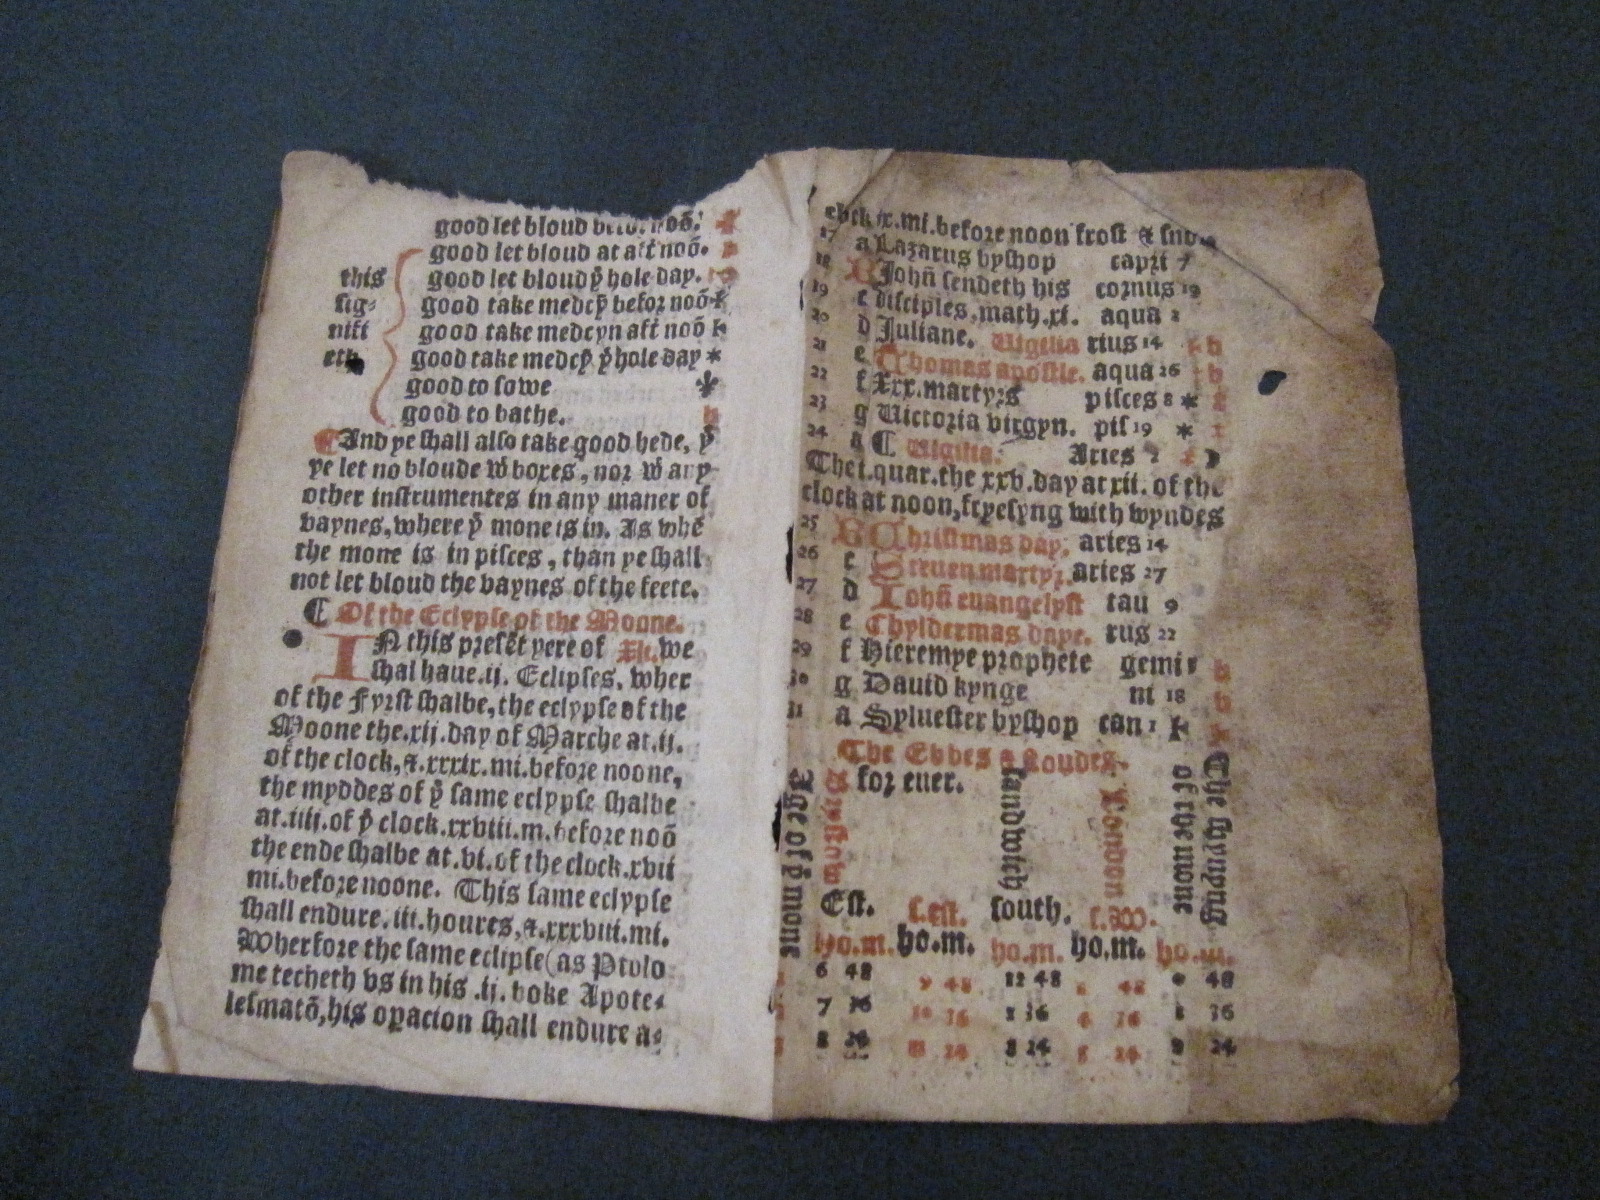 good let bloud before noō.
good let bloud at aft noō.
this good let bloud ẏ hole day.
sig- good take medcȳ befor noō
nifi good take medcyn aft noō
eth good take medcȳ ẏ hole day *
good to sowe
good to bathe.
¶ And ye shall also take good hede, ẏ
ye let no bloude w̄ boxes, nor w̄ any
other instrumentes in any maner of
vaynes, where ẏ mone is in. As whē
the mone is in pisces, than ye shall
not let bloud the vaynes of the feete.
¶ Of the Eclypse of the Moone.
IN this presēt yere of Xli. we
shal haue .ij. Eclipses, wher
of the Fyrst shalbe, the eclypse of the
Moone the .xij. day of Marche at .ij.
of the clock, & .xxxix. mi. before noone,
the myddes of ẏ same eclypse shalbe
at .iiij. of ẏ clock .xxviii. m. before noō
the ende shalbe at .vi. of the clock .xvii
mi. before noone. This same eclypse
shall endure .iii. houres, & .xxxviii. mi.
Wherfore the same eclipse (as Ptolo
me techeth vs in his .ij. boke Apote-
lesmatō, his opacion shall endure a-
ix. mi. before noon frost & snow
17 a Lazarus byshop capri 7
18 B Johñ sendeth his cornus 19
19 c disciples, math. xi. aqua 2
20 d Juliane. Vigilia rius 14 b
21 e Thomas apostle. aqua 26 b
22 f Xxx. martyrs pisces 8 *
23 g Victoria virgyn. pis 19 *
24 a ¶ Vigilia. Aries 2
The i. quar. the xxv. day at xii. of the
clock at noon, freesyng with wyndes
25 B Christmas day. aries 14
26 c Steuen martyr. aries 27
27 d Johñ euangelyst tau 9
28 e Chyldermas daye. rus 22
29 f Hieremye prophete gemi
30 g Dauid kynge ni 18
31 a Syluester byshop can 1
The Ebbes & floudes
for euer.
Age of ẏ mone
Brystow
Sandwich
London
of the mone
The shynyng
Est. s.est. south. s.W.
ho.m. ho.m. ho.m. ho.m. ho.m.
6 48 9 48 12 48 48 0 48
7 36 10 36 1 36 4 36 1 36
8 24 11 24 2 24 5 24 2 24